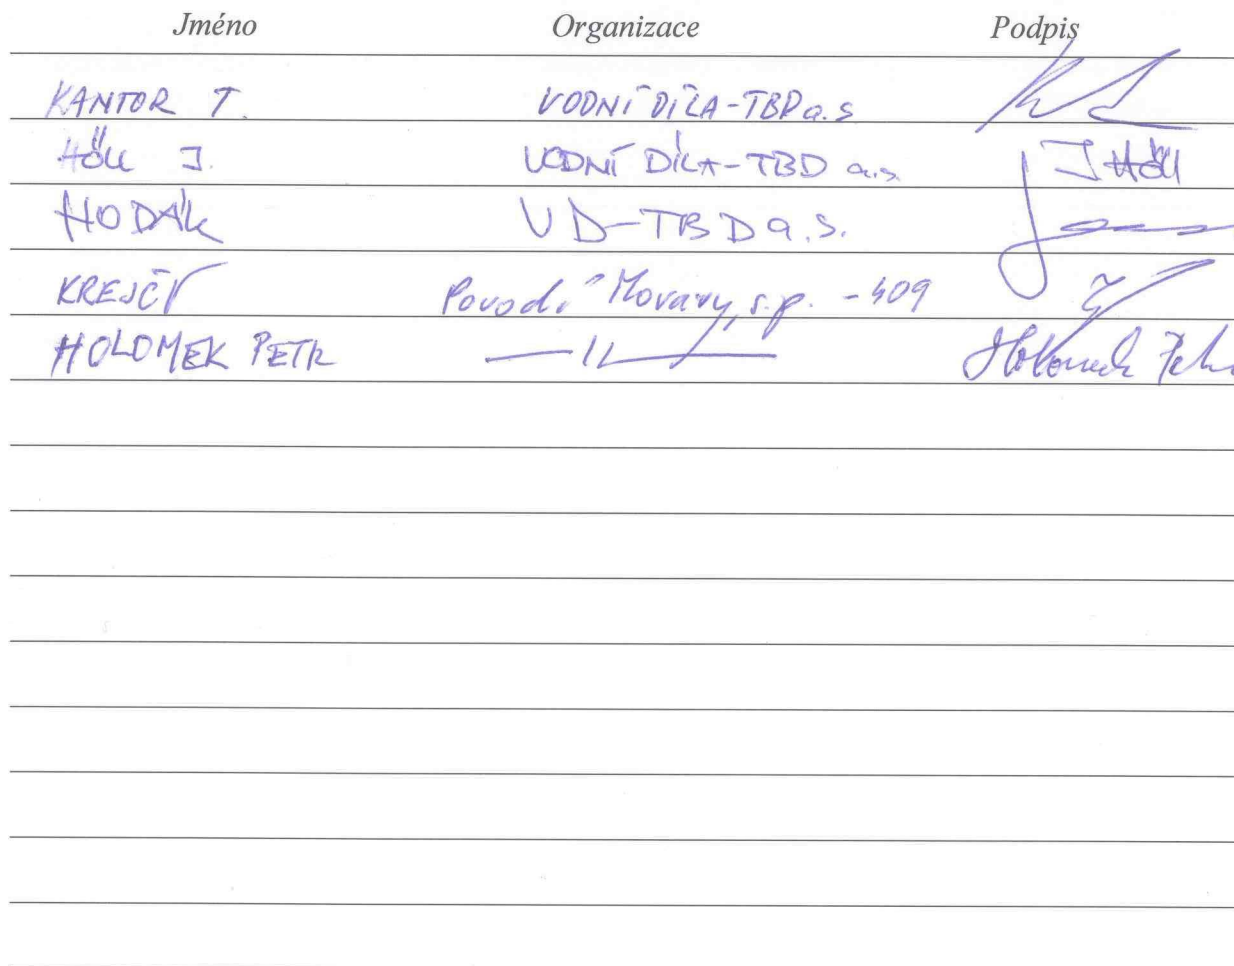 Jméno Organizace Podpis
KANTOR T. VODNÍ DÍLA-TBD a.s
HÖLL J. VODNÍ DÍLA-TBD a.s. J HÖLL
HODÁK VD-TBD a.s.
KREJČÍ Povodí Moravy, s.p. - 409
HOLOMEK PETR —||— Holomek Petr